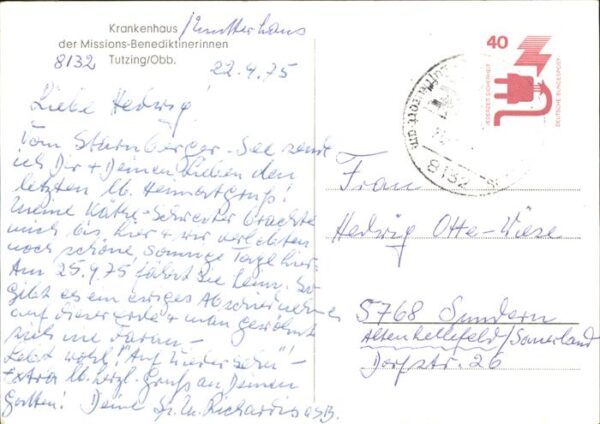 Krankenhaus /Mutterhaus
der Missions-Benediktinerinnen
8132 Tutzing/Obb.
22.4.75
Liebe Hedwig!
Vom Starnberger-See sende
ich Dir + Deinen Lieben den
letzten lb. Heimatgruß!
Meine Käthe-Schwester brachte
mich bis hier + wir verlebten
noch schöne, sonnige Tage hier.
Am 25.4.75 fährt sie heim. So
gibt es ein ewiges Abschiednehmen
auf dieser Erde + man gewöhnt
sich nie daran-
Lebt wohl! "Auf Wiedersehn"!-
Extra lb. herzl. Gruß an Deinen
Gatten! Deine Sr. M. Richardis OSB.
40
JEDERZEIT SICHERHEIT
DEUTSCHE BUNDESPOST
8132
Frau
Hedwig Otte-Wiese
5768 Sundern
Altenhellefeld/Sauerland
Dorfstr. 26